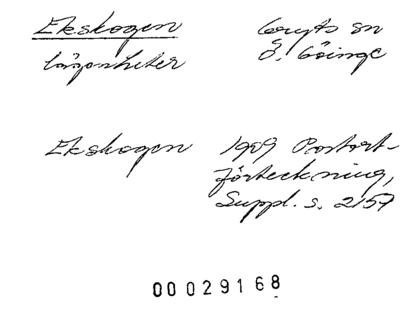 Ekskogen Gryts sn
lägenheter Ö. Göinge
Ekskogen 1909 Postort-
förteckning,
Suppl. s. 2157
00029168